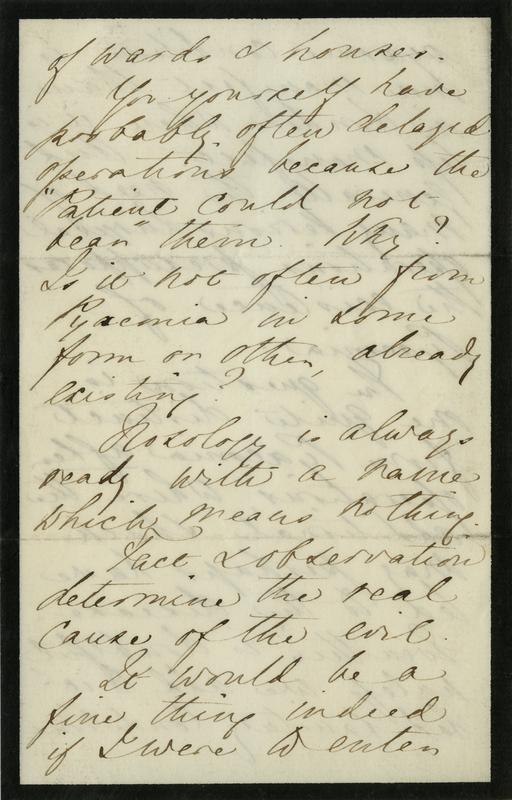 of wards & houses.
You yourself have
probably often delayed
operations because the
"Patient could not
bear" them. Why?
Is it not often from
Pyaemia in some
form or other, already
existing?
Nosology is always
ready with a name
which means nothing.
Fact & observation
determine the real
cause of the evil.
It would be a
fine thing indeed
if I were to enter